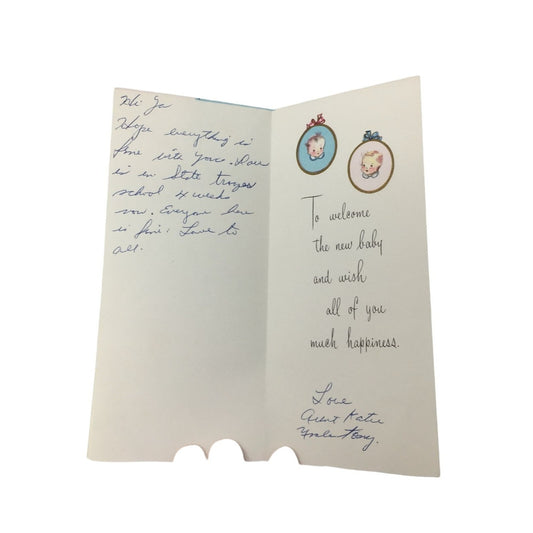 Hi Ya
Hope everything is
fine with you. Dave
is in State troops
school 4 weeks
now. Everyone here
is fine. Love to
all.
To welcome
the new baby
and wish
all of you
much happiness.
Love
Aunt Katie
Tony.